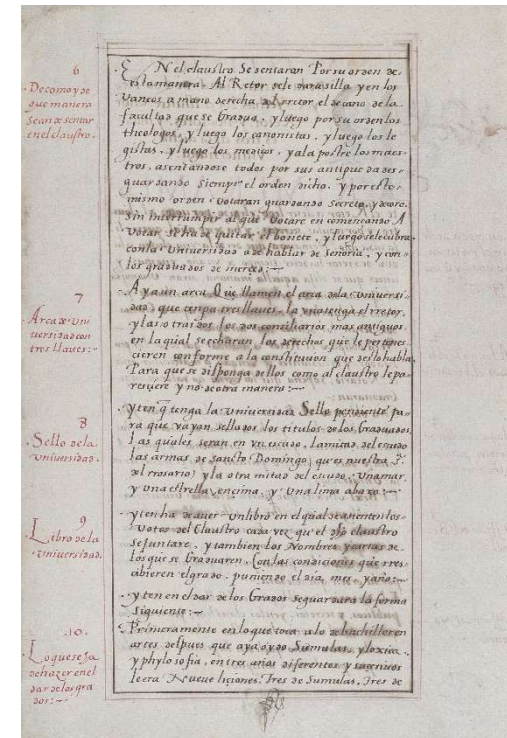 6
De como y de
que manera
se an de sentar
en el claustro.
En el claustro Se sentaran Por su orden de
esta manera. Al Retor se le dara silla y en los
vancos a mano derecha del retor el decano de la
facultad que se Gradua, y luego por su orden los
theologos, y luego los canonistas, y luego los le
gistas, y luego los medicos, y a la postre los maes
tros, asentandose todos por sus antiguedades
guardando siempre el orden dicho, y por este
mismo orden votaran guardando Secreto, y decoro,
Sin interrumpir al que Votare en comencando A
Votar se ha de quitar el bonete, y luego se cubra
con la Universidad a de hablar de Señoria, y con
los graduados de merced:~
7
Arca de Uni
versidad con
tres llaves:~
Aya un arca Que llamen el arca de la universi
dad, que tenga tres llaves, la una tenga el retor,
y las otras dos los dos conciliarios mas antiguos
en la qual se echaran los derechos que le pertenes
cieren conforme a la constitucion que desto habla
Para que se disponga dellos como al claustro le pa
resciere y no de otra manera:~
8
Sello de la
universidad.
yten q tenga la universidad Sello pendiente pa
ra que vayan sellados los titulos de los Graduados,
las quales seran en un escudo, la mitad del escudo
las armas de sancto Domingo, qu es nuestra Sª
del rosario) y la otra mitad del escudo Una mar
y Una estrella encima, y Una lima abaxo:~
9
Libro de la
universidad.
yten ha de aver un libro en el qual se asienten los
Votos del Claustro cada vez qu el dho claustro
se juntare, y tambien los Nombres y cartas de
los que se Graduaren, Con las condiciones que rres
cibieren el grado, puniendo el dia, mes, y año:~
yten en el dar de los Grados se guardara la forma
siguiente:~
10.
Lo que se ha
de hazer en el
dar de los gra
dos:~
Primeramente en lo que toca a lo de bachiller en
artes despues que aya oydo Sumulas, y loxica
y phylosofia, en tres años diferentes y sucesivos
leera Nueve liciones, Tres de Sumulas, Tres de